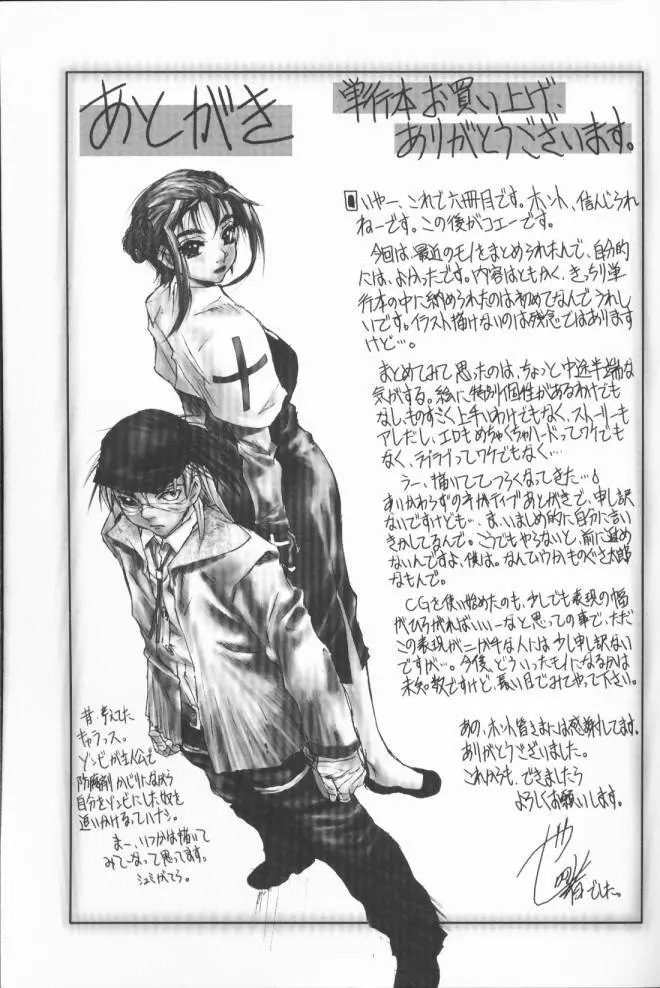 あとがき
単行本お買い上げ、
ありがとうございます。
いやー、これで六冊目です。ホント、信んじられ
ねーです。この後がコエーです。
今回は、最近のモノをまとめられたんで、自分的
には、よかったです。内容はともかく、きっちり単
行本の中に納められたのは初めてなんでうれし
いです。イラスト描けないのは残念ではあります
けど…。
まとめてみて思ったのは、ちょっと中途半端な
気がする。絵に特別個性があるわけでも
なし、ものすごく上手いわけでもなく、ストーリーも
アレだし、エロもめちゃくちゃハードってワケでも
なく、ラブラブってワケでもなく…。
うー、描いててつらくなってきた…。
あいかわらずのネガティブあとがきで、申し訳
ないですけども…ま、いましめ的に自分に言い
きかしてるんで。こうでもやらないと、前に進め
ないんですよ、僕は。なんていうかものぐさ太郎
なもんで。
CGを使い始めたのも、少しでも表現の幅
がひろがればいいなーと思っての事で、ただ
この表現がニガ手な人には少し申訳ない
ですが…。今後、どういったモノになるかは
未知数ですけど、長い目でみてやって下さい。
あの、ホント皆さまには感謝してます。
ありがとうございました。
これからも、できましたら
よろしくお願いします。
でした。
昔、考えてた
キャラっス。
ゾンビが主人公で
防腐剤かじりながら
自分をゾンビにした奴を
追いかけるっていハナシ。
まー、いつかは描いて
みてーなって思ってます。
シュミがてら。